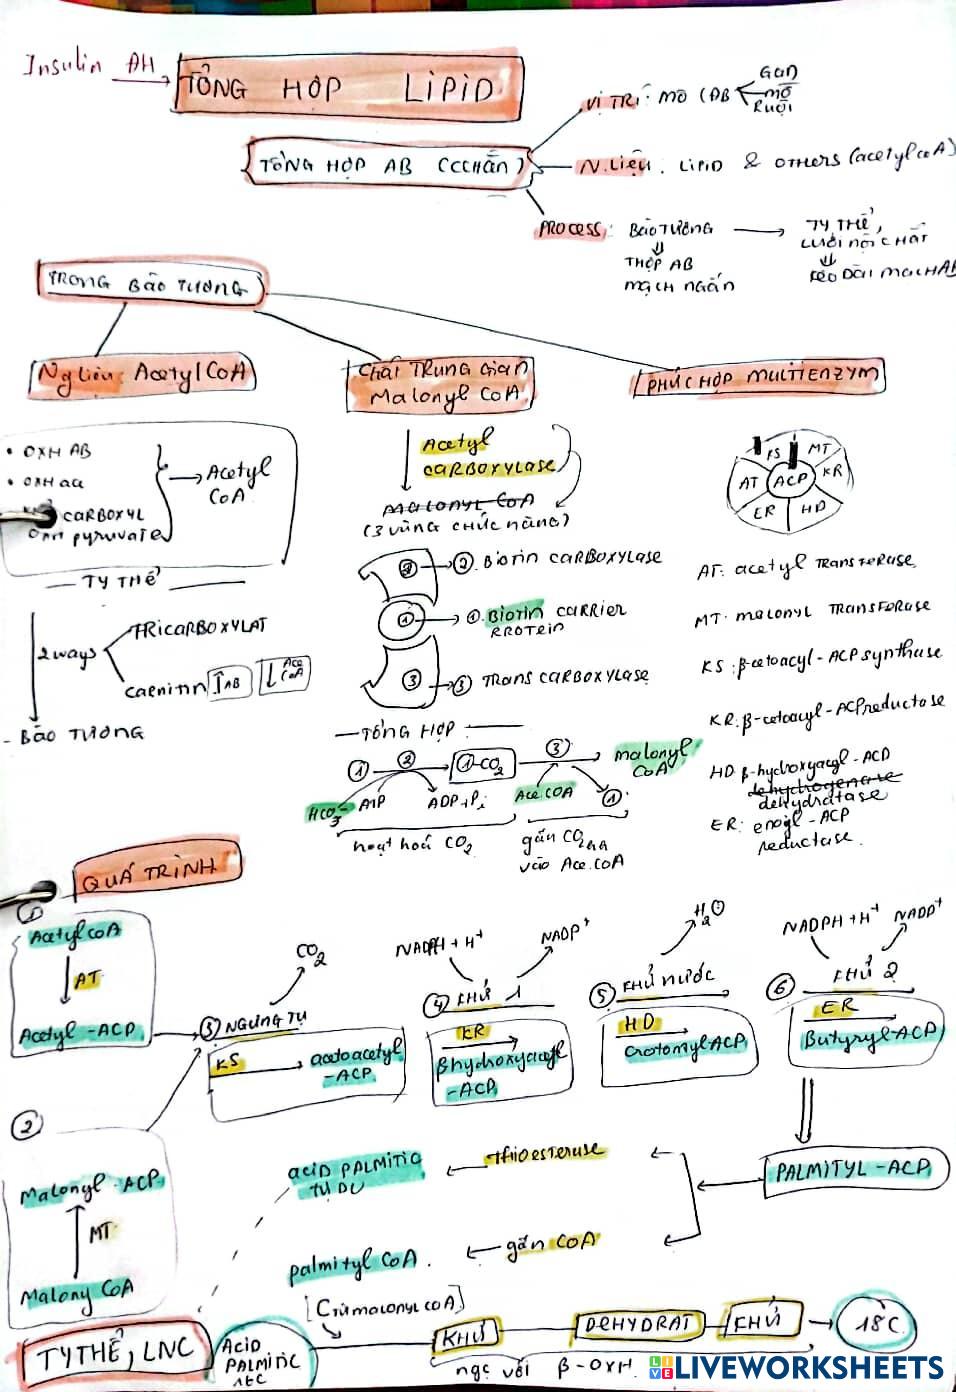 Insulin ĐH
TỔNG HỢP LIPID
VỊ TRÍ: MÔ (AB
Gan
mỡ
Ruột
TỔNG HỢP AB (CCHẴN)
N.Liệu: LIPID & OTHERS (acetyl CoA)
PROCESS: BÀO TƯƠNG
THỢP AB
MẠCH NGẮN
TY THỂ,
LƯỚI NỘI CHẤT
KÉO DÀI MẠCH AB
TRONG BÀO TƯƠNG
Ng liệu: Acetyl CoA
Chất TRUNG GIAN
Malonyl CoA
PHỨC HỢP MULTIENZYM
• OXH AB
• OXH aa
CARBOXYL
pyruvate
Acetyl
CoA
TY THỂ
2 ways
TRICARBOXYLAT
carnitin
↑AB
↓ Ace
CoA
- BÀO TƯƠNG
Acetyl
CARBOXYLASE
Malonyl CoA
(3 VÙNG CHỨC NĂNG)
② ② BIOTIN CARBOXYLASE
① ① BIOTIN CARRIER
PROTEIN
③ ③ TRANS CARBOXYLASE
TỔNG HỢP
① ② ①-CO2 ③ malonyl
CoA
HCO3- ATP ADP+Pi Ace.COA ①
hoạt hoá CO2
gắn CO2
vào Ace.CoA
KS MT
AT ACP KR
ER HD
AT: acetyl TRANSFERASE
MT: malonyl TRANSFERASE
KS: β-cetoacyl-ACP synthase
KR: β-cetoacyl-ACP reductase
HD β-hydroxyacyl-ACP
dehydrogenase
dehydratase
ER: enoyl-ACP
reductase.
QUÁ TRÌNH
①
Acetyl coA
AT
Acetyl-ACP
②
Malonyl-ACP
MT
Malony CoA
CO2
③ NGƯNG TỤ
KS
acetoacetyl
-ACP
NADPH + H+ NADP+
④ KHỬ 1
KR
βhydroxyacetyl
-ACP
H2O
⑤ KHỬ NƯỚC
HD
Crotomyl ACP
NADPH + H+ NADP+
⑥ KHỬ 2
ER
Butyryl-ACP
PALMITYL-ACP
Thioesterase
acid PALMITIC
TỰ DO
gắn CoA
palmityl CoA.
[Từ malonyl coA]
TY THỂ, LNC
ACID
PALMITIC
16C
KHỬ
DEHYDRAT
KHỬ
18C
ngc với β-OXH
LIVEWORKSHEETS